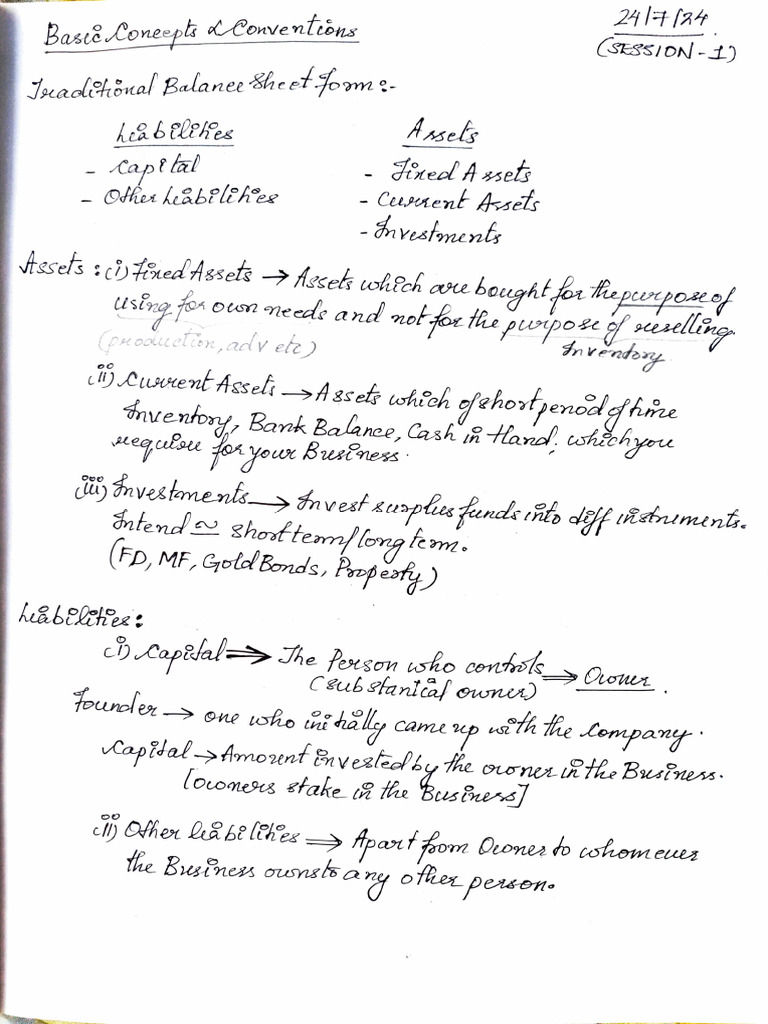 24/7/24
(SESSION-1)
Basic Concepts & Conventions
Traditional Balance Sheet form:-
Liabilities Assets
- Capital - Fixed Assets
- Other Liabilities - Current Assets
- Investments
Assets: (i) Fixed Assets → Assets which are bought for the purpose of
using for own needs and not for the purpose of reselling.
(production, adv etc) Inventory
(ii) Current Assets → Assets which of short period of time
Inventory, Bank Balance, Cash in Hand, which you
require for your Business.
(iii) Investments → Invest surplus funds into diff instruments.
Intend ≃ short term/long term.
(FD, MF, Gold Bonds, Property)
Liabilities:
(i) Capital ⇒ The Person who controls ⇒ Owner.
(substanical owner)
Founder → one who initially came up with the company.
Capital → Amount invested by the owner in the Business.
[owners stake in the Business]
(ii) Other liabilities ⇒ Apart from Owner to whomever
the Business owns to any other person.